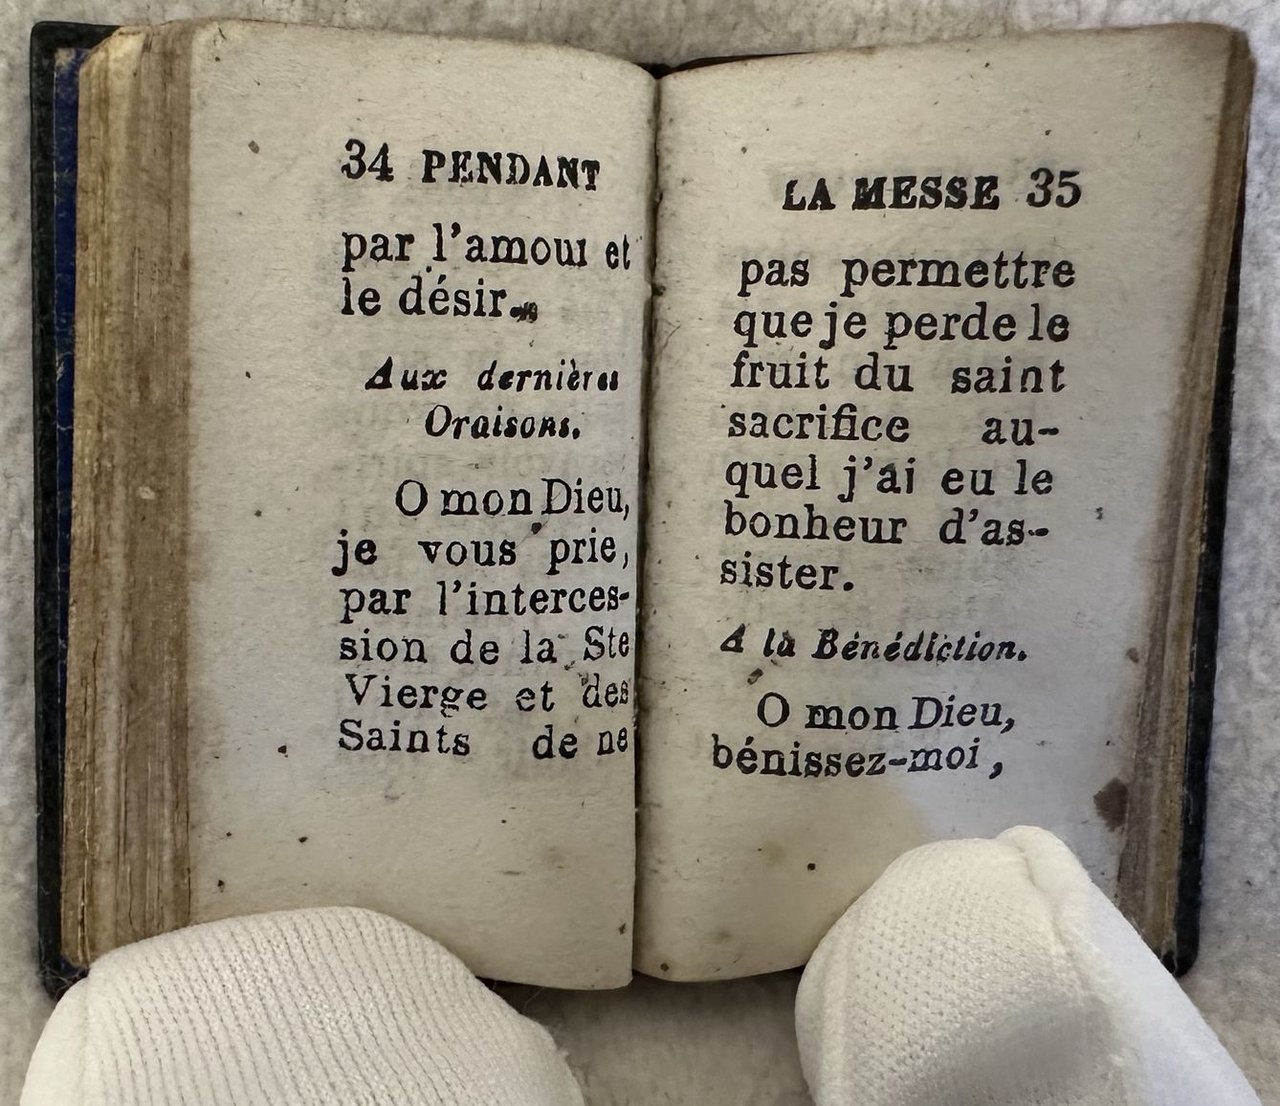 34 PENDANT
par l'amour et
le désir.
Aux dernières
Oraisons.
O mon Dieu,
je vous prie,
par l'interces-
sion de la Ste
Vierge et des
Saints de ne
LA MESSE 35
pas permettre
que je perde le
fruit du saint
sacrifice au-
quel j'ai eu le
bonheur d'as-
sister.
A la Bénédiction.
O mon Dieu,
bénissez-moi,